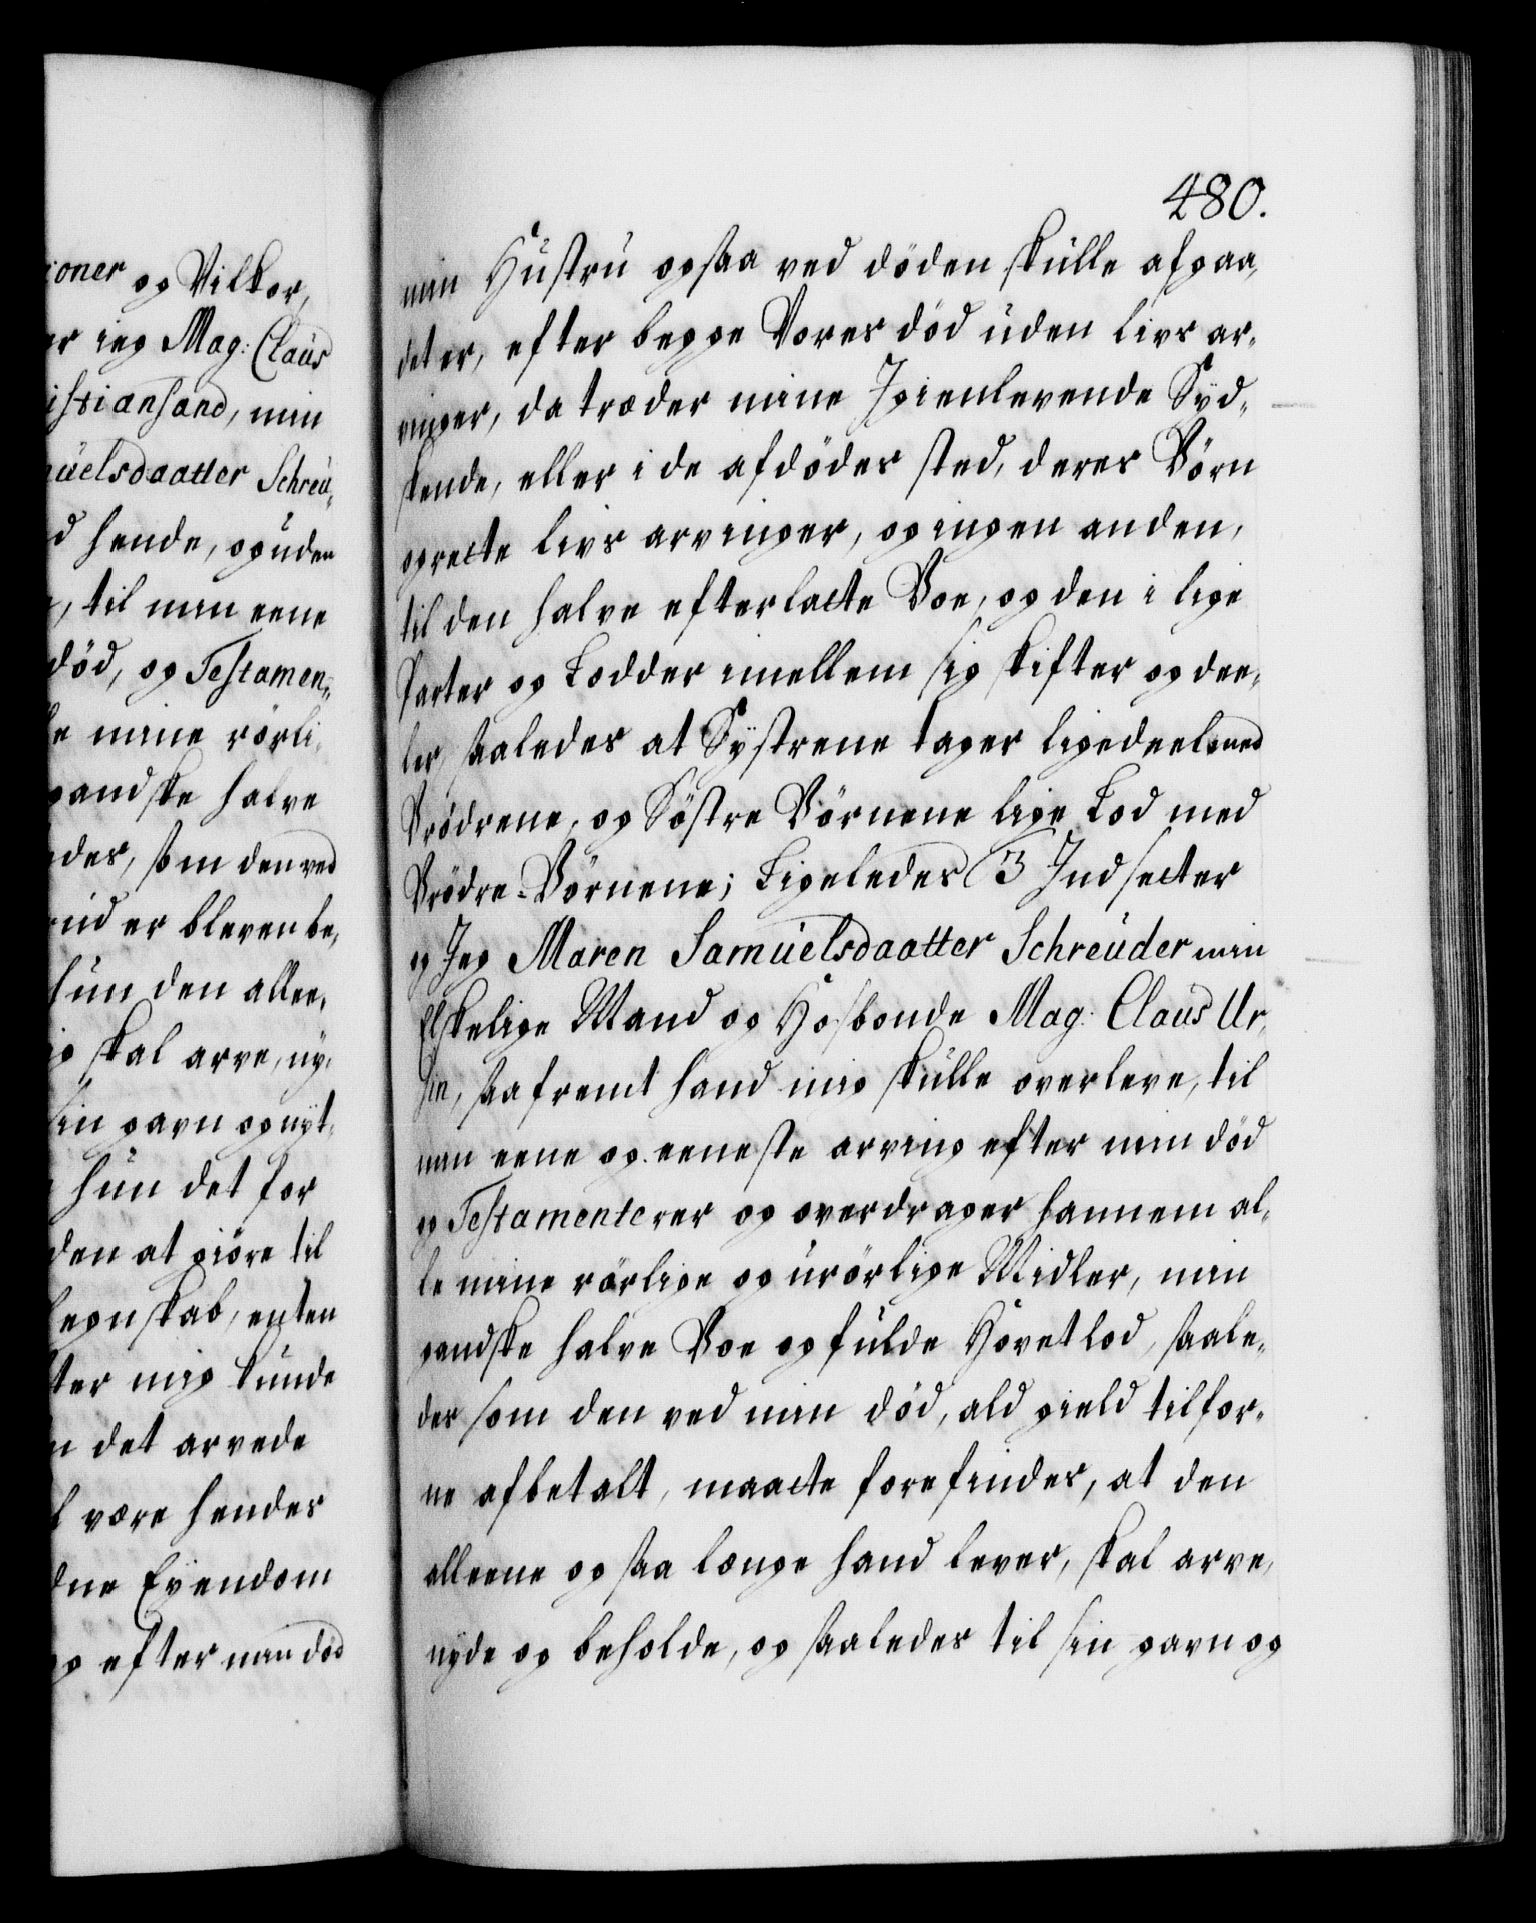 ioner og Vilkor,
er ieg Mag: Claus
istiansand, min
uelsdaatter Schreu-
d hende, og uden
, til min eene
død, og Testamen-
le mine rørli-
gandske halve
edes, som den ved
er bleven be-
hun den allee-
ig skal arve, ny-
sin gavn og nyt-
hun det for
den at giøre til
egnskab, enten
ter mig kunde
n det arvede
l være hendes
dne Eyendom
og efter min død
480.
min Hustru ogsaa ved døden skulle afgaa,
det er, efter begge Vores død uden livs ar-
vinger, da træder mine Igienlevende Syd-
skende, eller i de afdødes sted, deres Børn
og rette livs arvinger, og ingen anden,
til den halve efterlatte Boe, og den i lige
Parter og Lodder imellem sig skifter og dee-
ler, saaledes at Systrene tager ligedeel med
Brødrene, og Søstre Børnene lige Lod med
Brødre-Børnene; Ligeledes 3 Indsetter
og Jeg Maren Samuelsdaatter Schreuder min
Elskelige Mand og Hosbonde Mag: Claus Ur-
sin, saafremt hand mig skulle overleve, til
min eene og eeneste arving efter min død
og Testamenterer og overdrager hannem al-
le mine rørlige og urørlige Midler, min
gandske halve Boe og fulde Hovetlod, saale-
des som den ved min død, ald gield tilfor-
ne afbetalt, maatte forefindes, at den
alleene og saa længe hand lever, skal arve,
nyde og beholde, og saaledes til sin gavn og